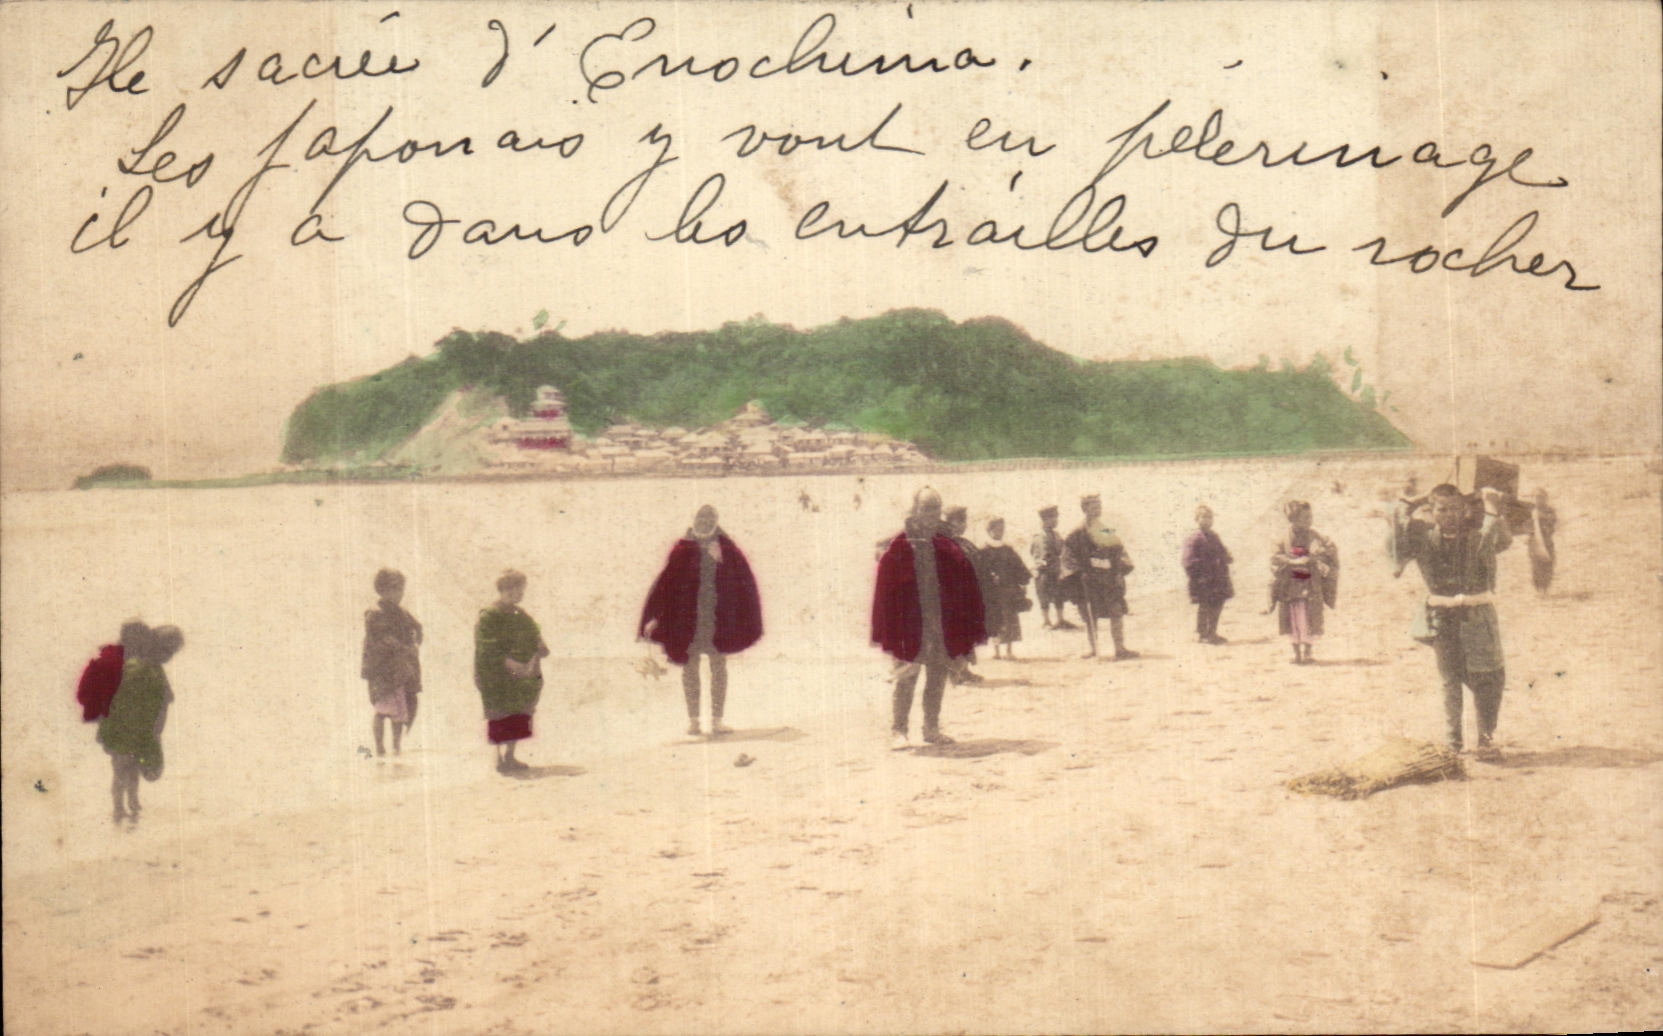 Ile sacrée d'Enochima.
Les Japonais y vont en pelerinage
il y a dans les entrailles du rocher